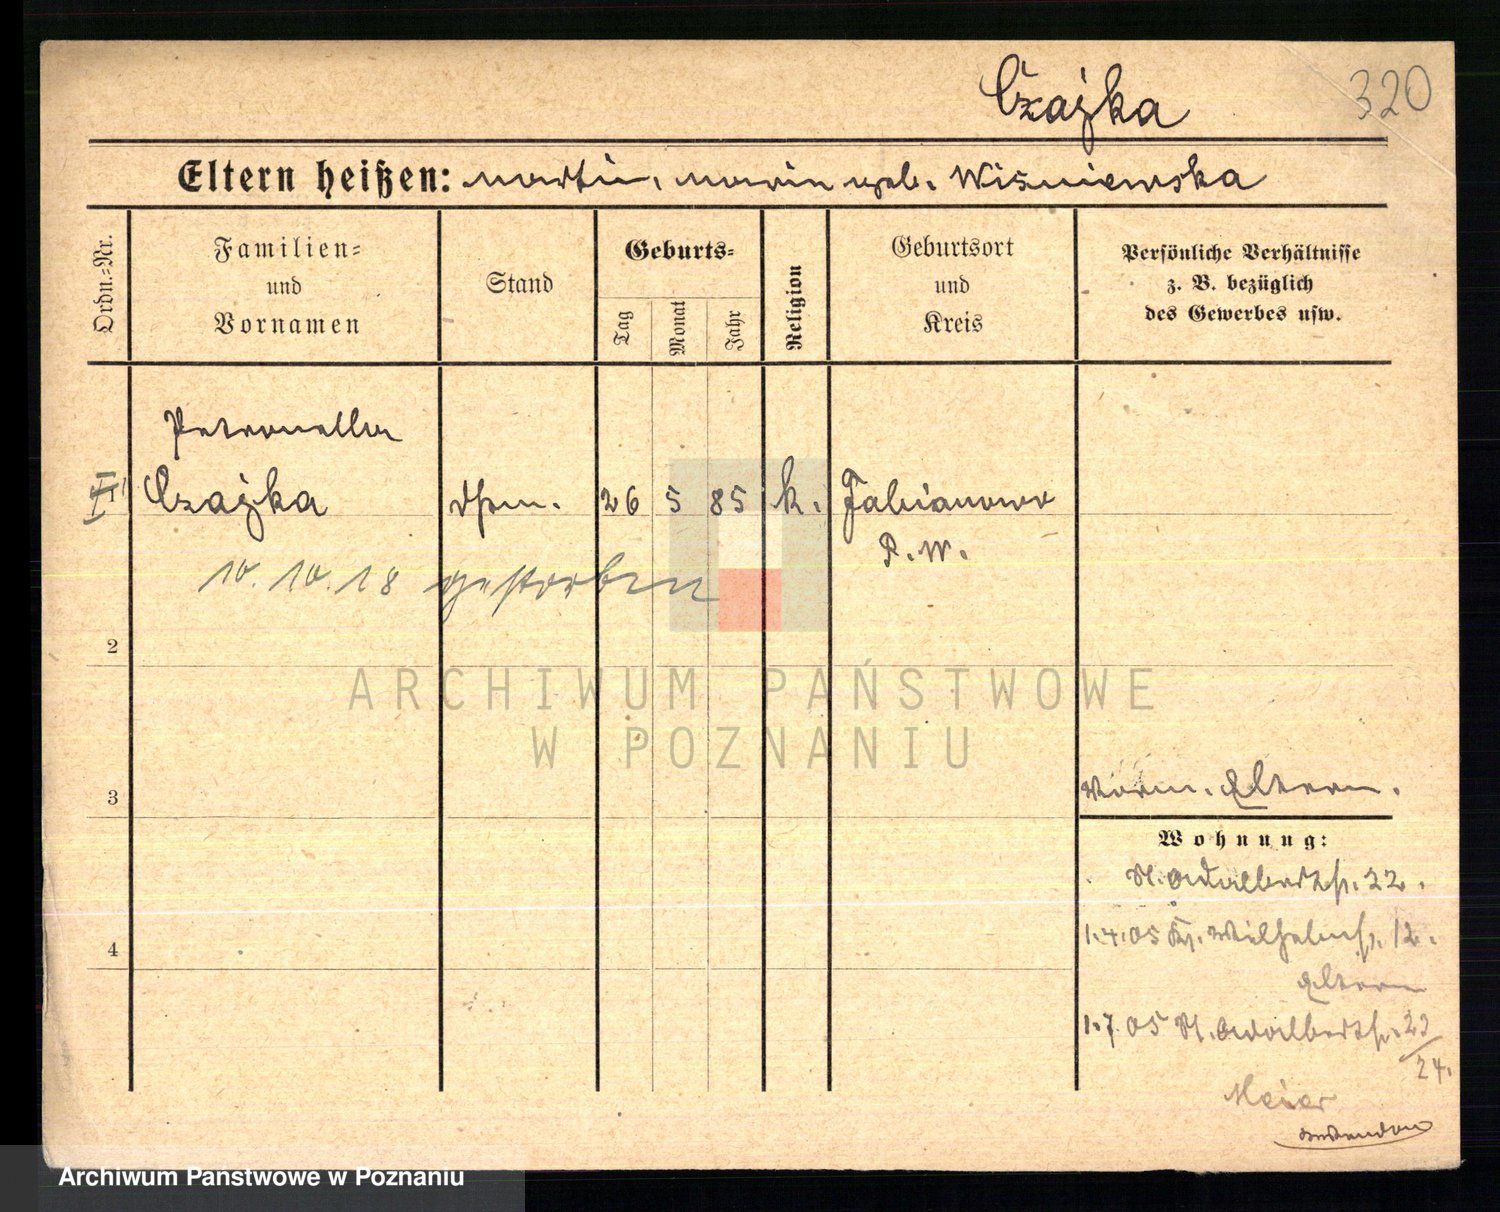 Czajka
320
Eltern heißen: Martin, Marie geb. Wiśniewska
Ordn.-Nr.
Familien-
und
Vornamen
Stand
Geburts-
Tag
Monat
Jahr
Religion
Geburtsort
und
Kreis
Persönliche Verhältnisse
z. B. bezüglich
des Gewerbes usw.
Petronella
Czajka
26 5 85 k. Fabianowo
P. W.
10. 10. 18 gestorben
2
3
4
Eltern.
Wohnung:
N. Adalbertst. 22.
1.4.05 Wilhelmst. 12.
Eltern
1.7.05 N. Adalbertst. 23/24.
Meier
ARCHIWUM PAŃSTWOWE
W POZNANIU
Archiwum Państwowe w Poznaniu